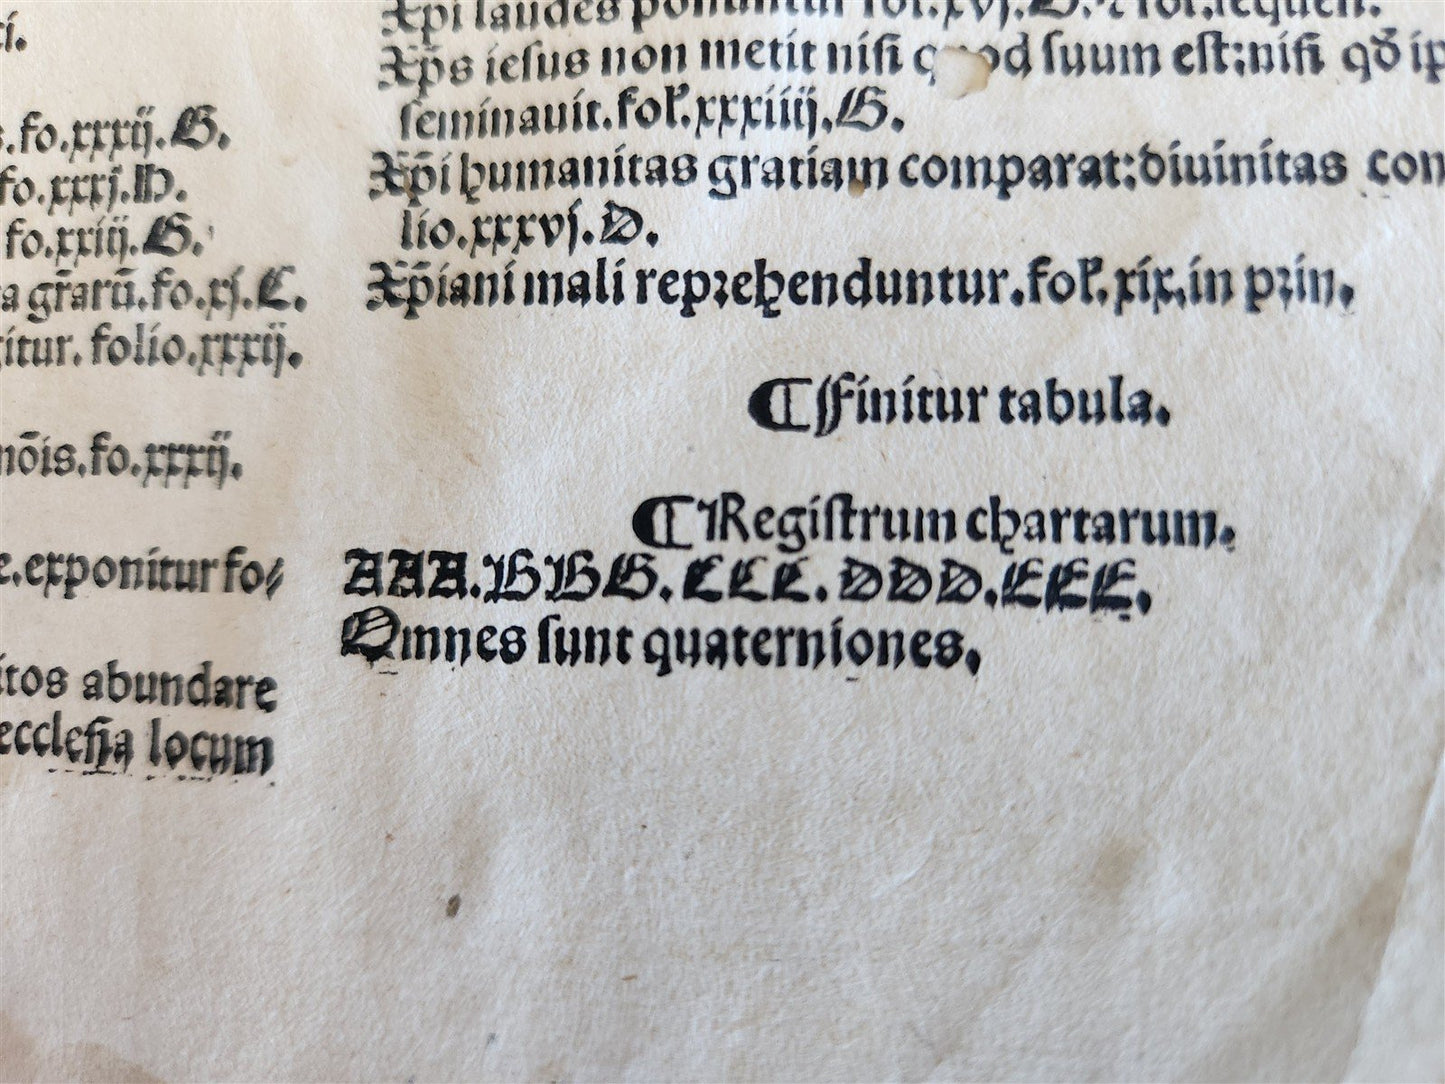 ci.
s.fo.xxxij.G.
fo.xxxj.H.
fo.xxiij.G.
a gr̄arū.fo.xj.C.
gitur. folio.xxxij.
nōis.fo.xxxij.
e.exponitur fo⸗
itos abundare
ecclesia locum
Xp̄i laudes ponuntur fol.xvj.D.⁊ fol.sequen.
Xp̄s iesus non metit nisi quod suum est:nisi qđ ip
seminauit.fol̕.xxxiiij.G.
Xp̄i humanitas gratiam comparat:diuinitas con
lio.xxxvj.D.
Xp̄iani mali reprehenduntur.fol̕.xix.in prin.
¶ Finitur tabula.
¶ Registrum chartarum.
AAA.BBB.CCC.DDD.EEE.
Omnes sunt quaterniones.